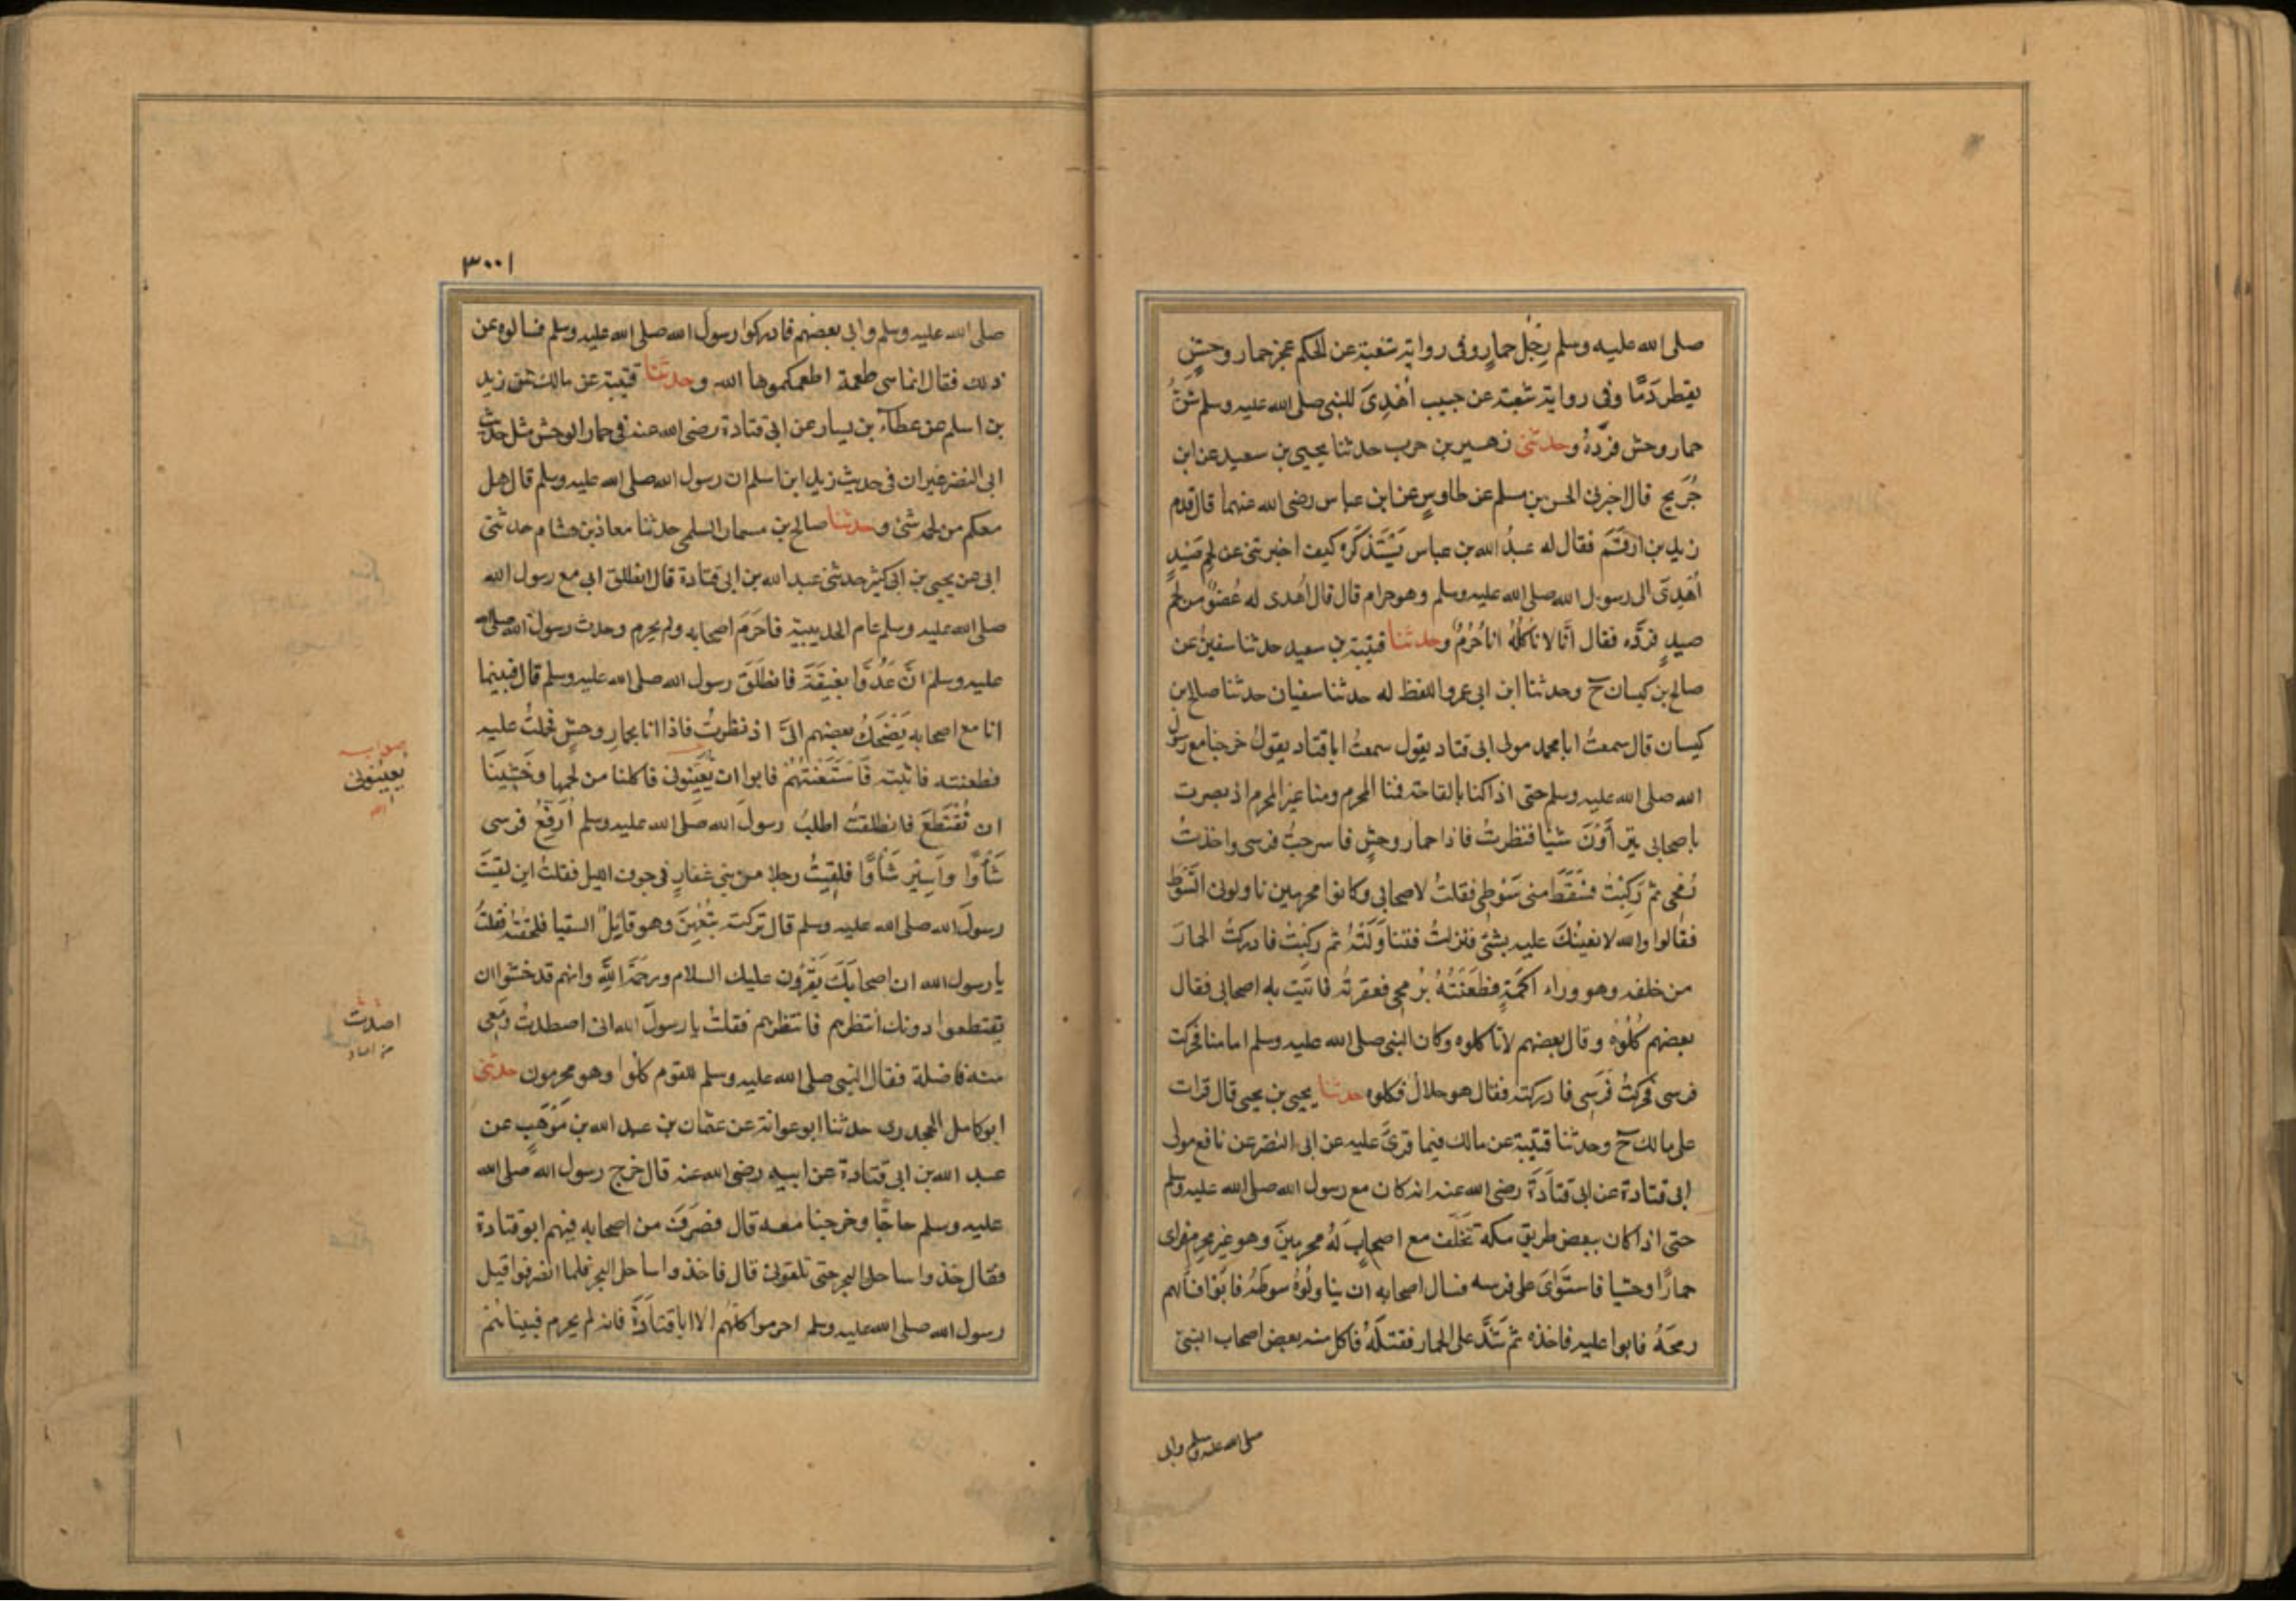 صلى الله عليه وسلم رِجْل حمارٍ وفى رواية شعبة عن الحكم عجز حمار وحشٍ
يقطر دَمًا وفى رواية شعبة عن حبيب اُهْدِىَ للنبى صلى الله عليه وسلم شقُّ
حمار وحش فردَّهُ وحدثنى زهير بن حرب حدثنا يحيى بن سعيد عن ابن
جُرَيج قال اخبرنى الحسن بن مسلم عن طاوسٍ عن ابن عباس رضى الله عنهما قال قدم
زيد بن ارقَم فقال له عبدُ الله بن عباس يَسْتَذكرُه كيف اخبرتنى عن لحم صَيْدٍ
اُهْدِىَ الى رسول الله صلى الله عليه وسلم وهو حرام قال قال اُهْدى له عُضْوٌ من لحم
صيدٍ فردَّه فقال انَّا لا نَاكُلُهُ انا حُرُمٌ وحدثنا قتيبة بن سعيد حدثنا سفين عن
صالح بن كيسان ح وحدثنا ابن ابى عمر واللفظ له حدثنا سفيان حدثنا صالح بن
كيسان قال سمعتُ ابا محمد مولى ابى قتاد يقول سمعتُ ابا قتاد يقولُ خرجنا مع رسول
الله صلى الله عليه وسلم حتى اذا كنا بالقاحة فمنا المحرم ومنا غير المحرم اذ بصرت
باصحابى يتراَوْنَ شيًا فنظرتُ فاذا حمار وحشٍ فاسرجتُ فرسى واخذتُ
رُمحى ثم رَكِبْتُ فسَقَطَ منى سَوْطِى فقلتُ لاصحابى وكانوا محرمين ناولونى السَّوْط
فقالوا والله لا نعينُكَ عليه بشئ فنزلتُ فتناوَلتُهُ ثم ركبتُ فادركتُ الحمارَ
من خلفه وهو وراء اَكَمَةٍ فطَعَنتُهُ برُمحى فعقرتهُ فاتيت به اصحابى فقال
بعضهم كُلُوهُ وقال بعضهم لا تاكلوه وكان النبى صلى الله عليه وسلم امامنا فحركت
فرسى فحركتُ فَرَسِى فادركته فقال هو حلالٌ فكلوه حدثنا يحيى بن يحيى قال قرات
على مالك ح وحدثنا قتيبة عن مالك فيما قرئَ عليه عن ابى النضر عن نافع مولى
ابى قتادة عن ابى قتادَةَ رضى الله عنه انه كان مع رسول الله صلى الله عليه وسلم
حتى اذا كان ببعض طريق مكة تَخَلَّفَ مع اصحابٍ لَهُ محرمينَ وهو غير محرم فراى
حمارًا وحشيا فاستَوٰى على فرسه فسال اصحابه ان يناولُوهُ سوطَهُ فابَوْا فسالهم
رمحَهُ فابوا عليه فاخذه ثم شَدَّ على الحمار فقتلَهُ فاكل منه بعض اصحاب النبىّ
صلى الله عليه وسلم وابى
٣٠٠١
صلى الله عليه وسلم وابى بعضهم فادركوا رسول الله صلى الله عليه وسلم فسالوه عن
ذلك فقال انما هى طعمة اطعمكموها الله وحدثنا قتيبة عن مالك عن زيد
بن اسلم عن عطاء بن يسار عن ابى قتادة رضى الله عنه فى حمار الوحش مثل حديث
ابى النضر غير ان فى حديث زيد ابن اسلم ان رسول الله صلى الله عليه وسلم قال هل
معكم من لحمه شئ وحدثنا صالح بن مسمار السلمى حدثنا معاذ بن هشام حدثنى
ابى عن يحيى بن ابى كثير حدثنى عبد الله بن ابى قتادة قال انطلق ابى مع رسول الله
صلى الله عليه وسلم عام الحديبية فاحرَم اصحابه ولم يحرم وحدث رسول الله صلى الله
عليه وسلم انَّ عَدُوًّا بغَيقَةَ فانطَلَقَ رسول الله صلى الله عليه وسلم قال فبينما
انا مع اصحابه يَضْحَكُ بعضهم الىَّ اذ نظرتُ فاذا انا بحمار وحشٍ فحملتُ عليه
فطعنته فاثبته فَاسْتَعَنْتُهُمْ فابوا ان يُعَيِنُونى فاكلنا من لحمها وخَشِينَا
ان نُقْتَطَعَ فانطلقتُ اطلبُ رسولَ الله صلى الله عليه وسلم اُرَفِّعُ فرسى
شَاْوًا وَاَسِيرُ شَاْوًا فلقيتُ رجلا من بنى غفارٍ فى جوف الليل فقلتُ اين لقيتَ
رسولَ الله صلى الله عليه وسلم قال تركته بتَعْهِنَ وهو قايلٌ السقيا فلحقتُه فقلتُ
يا رسول الله ان اصحابَكَ يَقْرَؤن عليك السلام ورحمَةَ اللهِ وانهم قد خشوا ان
يقتطعوا دونك انتظرهم فانتظرهم فقلتُ يا رسولَ الله انى اصطدتُ ومَعِى
منه فاضلة فقال النبى صلى الله عليه وسلم للقوم كلُوا وهو محرمون حدثنى
ابو كامل الجحدرى حدثنا ابو عوانة عن عثمان بن عبد الله بن مَوْهَبٍ عن
عبد الله بن ابى قتادة عن ابيه رضى الله عنه قال خرج رسول الله صلى الله
عليه وسلم حاجًا وخرجنا معه قال فصَرَفَ من اصحابه فيهم ابو قتادة
فقال خذوا ساحل البحر حتى تلقونى قال فاخذوا ساحل البحر فلما انصرفوا قبل
رسول الله صلى الله عليه وسلم احرموا كلهم الا ابا قتادَةَ فانه لم يحرم فبينا هم
صوابه
يُعِينُونى
اصدت